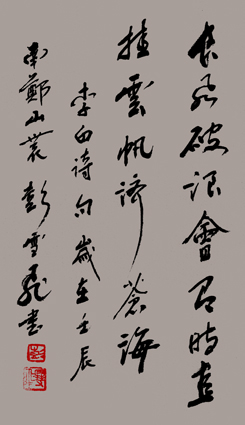 長風破浪會有時直
挂雲帆濟滄海
李白詩句歲在壬辰
南鄭山農彭雪飛書